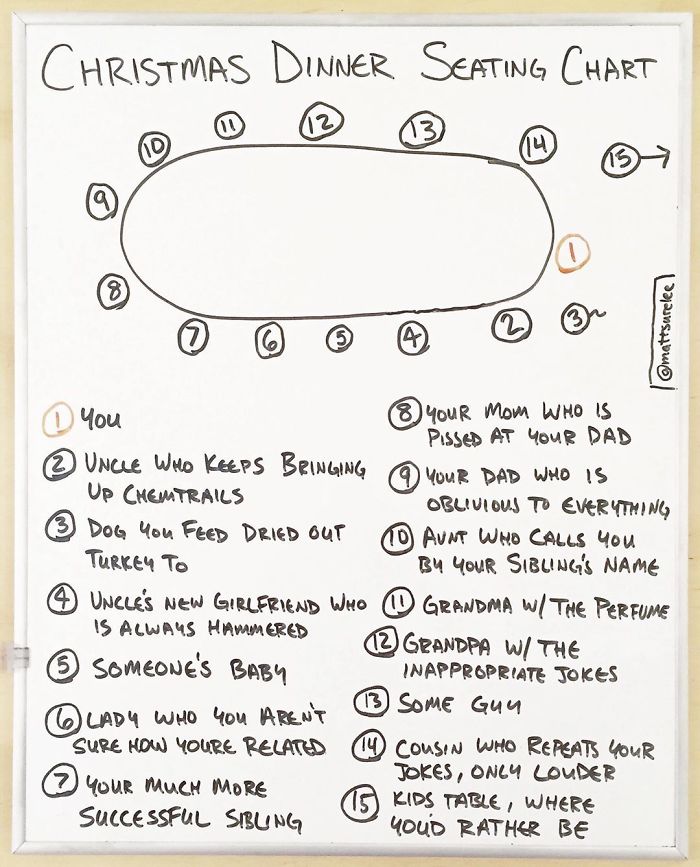 CHRISTMAS DINNER SEATING CHART
11 12 13
10 14 15
9
1
8
7 6 5 4 2 3
@mattsurelee
1 YOU
2 UNCLE WHO KEEPS BRINGING
UP CHEMTRAILS
3 DOG YOU FEED DRIED OUT
TURKEY TO
4 UNCLE'S NEW GIRLFRIEND WHO
IS ALWAYS HAMMERED
5 SOMEONE'S BABY
6 LADY WHO YOU AREN'T
SURE HOW YOURE RELATED
7 YOUR MUCH MORE
SUCCESSFUL SIBLING
8 YOUR MOM WHO IS
PISSED AT YOUR DAD
9 YOUR DAD WHO IS
OBLIVIOUS TO EVERYTHING
10 AUNT WHO CALLS YOU
BY YOUR SIBLING'S NAME
11 GRANDMA W/ THE PERFUME
12 GRANDPA W/ THE
INAPPROPRIATE JOKES
13 SOME GUY
14 COUSIN WHO REPEATS YOUR
JOKES, ONLY LOUDER
15 KIDS TABLE, WHERE
YOU'D RATHER BE